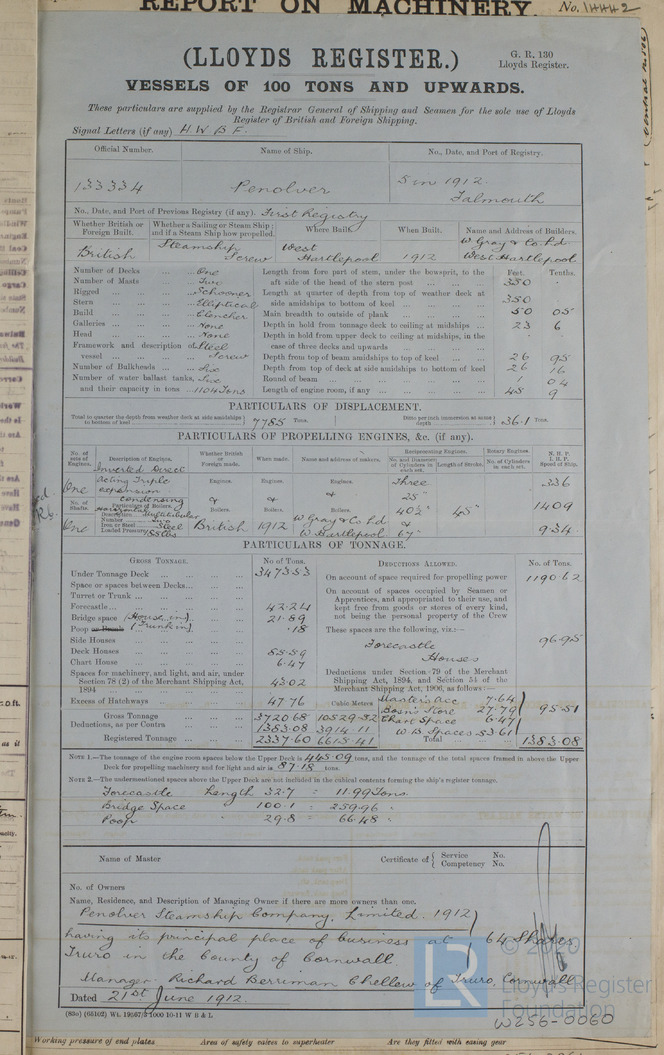 REPORT ON MACHINERY. No. 14442
(LLOYDS REGISTER.)
G. R. 130
Lloyds Register.
VESSELS OF 100 TONS AND UPWARDS.
These particulars are supplied by the Registrar General of Shipping and Seamen for the sole use of Lloyds
Register of British and Foreign Shipping.
Signal Letters (if any) H. W. B. F.
Official Number. Name of Ship. No., Date, and Port of Registry.
133334 Penolver 5 in 1912.
Falmouth
No., Date, and Port of Previous Registry (if any). First Registry
Whether British or Foreign Built. Whether a Sailing or Steam Ship; and if a Steam Ship how propelled. Where Built. When Built. Name and Address of Builders.
British Steamship Screw West Hartlepool 1912 W. Gray & Co. Ld. West Hartlepool
Feet. Tenths.
Number of Decks One Length from fore part of stem, under the bowsprit, to the
Number of Masts Two aft side of the head of the stern post 350 .
Rigged Schooner Length at quarter of depth from top of weather deck at
Stern Elliptical side amidships to bottom of keel 350
Build Clencher Main breadth to outside of plank 50 05
Galleries None Depth in hold from tonnage deck to ceiling at midships 23 6
Head None Depth in hold from upper deck to ceiling at midships, in the
Framework and description of vessel Steel Screw case of three decks and upwards
Depth from top of beam amidships to top of keel 26 95
Number of Bulkheads Six Depth from top of deck at side amidships to bottom of keel 26 16
Number of water ballast tanks, Six Round of beam 1 04
and their capacity in tons 1104 Tons Length of engine room, if any 45 9
PARTICULARS OF DISPLACEMENT.
Total to quarter the depth from weather deck at side amidships to bottom of keel 7785 Tons. Ditto per inch immersion at same depth 36.1 Tons.
PARTICULARS OF PROPELLING ENGINES, &c. (if any).
No. of sets of Engines. Description of Engines. Whether British or Foreign made. When made. Name and address of makers. Reciprocating Engines. No. and Diameter of Cylinders in each set. Length of Stroke. Rotary Engines. No. of Cylinders in each set. N. H. P. I. H. P. Speed of Ship.
One Inverted Direct Acting Triple expansion condensing Engines. Engines. Engines. Three 336
25" 40½" 45" 1409
No. of Shafts. Particulars of Boilers. & & & Boilers. Boilers. Boilers.
Description Horizontal Multitubular
Number Two
One Iron or Steel Steel British 1912 W. Gray & Co Ld W. Hartlepool & 67" 9.34
Loaded Pressure
PARTICULARS OF TONNAGE.
GROSS TONNAGE. No. of Tons. DEDUCTIONS ALLOWED. No. of Tons.
Under Tonnage Deck 3473.53 On account of space required for propelling power 1190.62
Space or spaces between Decks
Turret or Trunk On account of spaces occupied by Seamen or Apprentices, and appropriated to their use, and
Forecastle 42.24 kept free from goods or stores of every kind,
Bridge space (House in) 21.89 not being the personal property of the Crew
Poop or Break (Trunk in) .18 These spaces are the following, viz.:—
Side Houses Forecastle 96.95
Deck Houses 85.59 Houses
Chart House 6.47
Spaces for machinery, and light, and air, under Section 78 (2) of the Merchant Shipping Act, 1894 43.02 Deductions under Section 79 of the Merchant Shipping Act, 1894, and Section 54 of the Merchant Shipping Act, 1906, as follows:—
Excess of Hatchways 47.76 Cubic Metres Master's Acc 7.64
Bosn's Store 27.79 95.51
Gross Tonnage 3720.68 10529.52 Chart Space 6.47
Deductions, as per Contra 1383.08 3914.11 W. B. Spaces 53.61
Registered Tonnage 2337.60 6615.41 Total 1383.08
NOTE 1.—The tonnage of the engine room spaces below the Upper Deck is 445.09 tons, and the tonnage of the total spaces framed in above the Upper
Deck for propelling machinery and for light and air is 87.18 tons.
NOTE 2.—The undermentioned spaces above the Upper Deck are not included in the cubical contents forming the ship's register tonnage.
Forecastle Length 32.7 = 11.99 Tons.
Bridge Space 100.1 = 259.96
Poop 29.8 = 66.48
Name of Master Certificate of Service No. Competency No.
No. of Owners
Name, Residence, and Description of Managing Owner if there are more owners than one.
Penolver Steamship Company, Limited. 1912
having its principal place of business at 64 Shares
Truro in the County of Cornwall.
Manager. Richard Berriman Chellew of Truro, Cornwall
Dated 21st June 1912.
© 2020
LR Lloyd's Register
Foundation
W256-0060
Working pressure of end plates Area of safety valves to superheater Are they fitted with easing gear